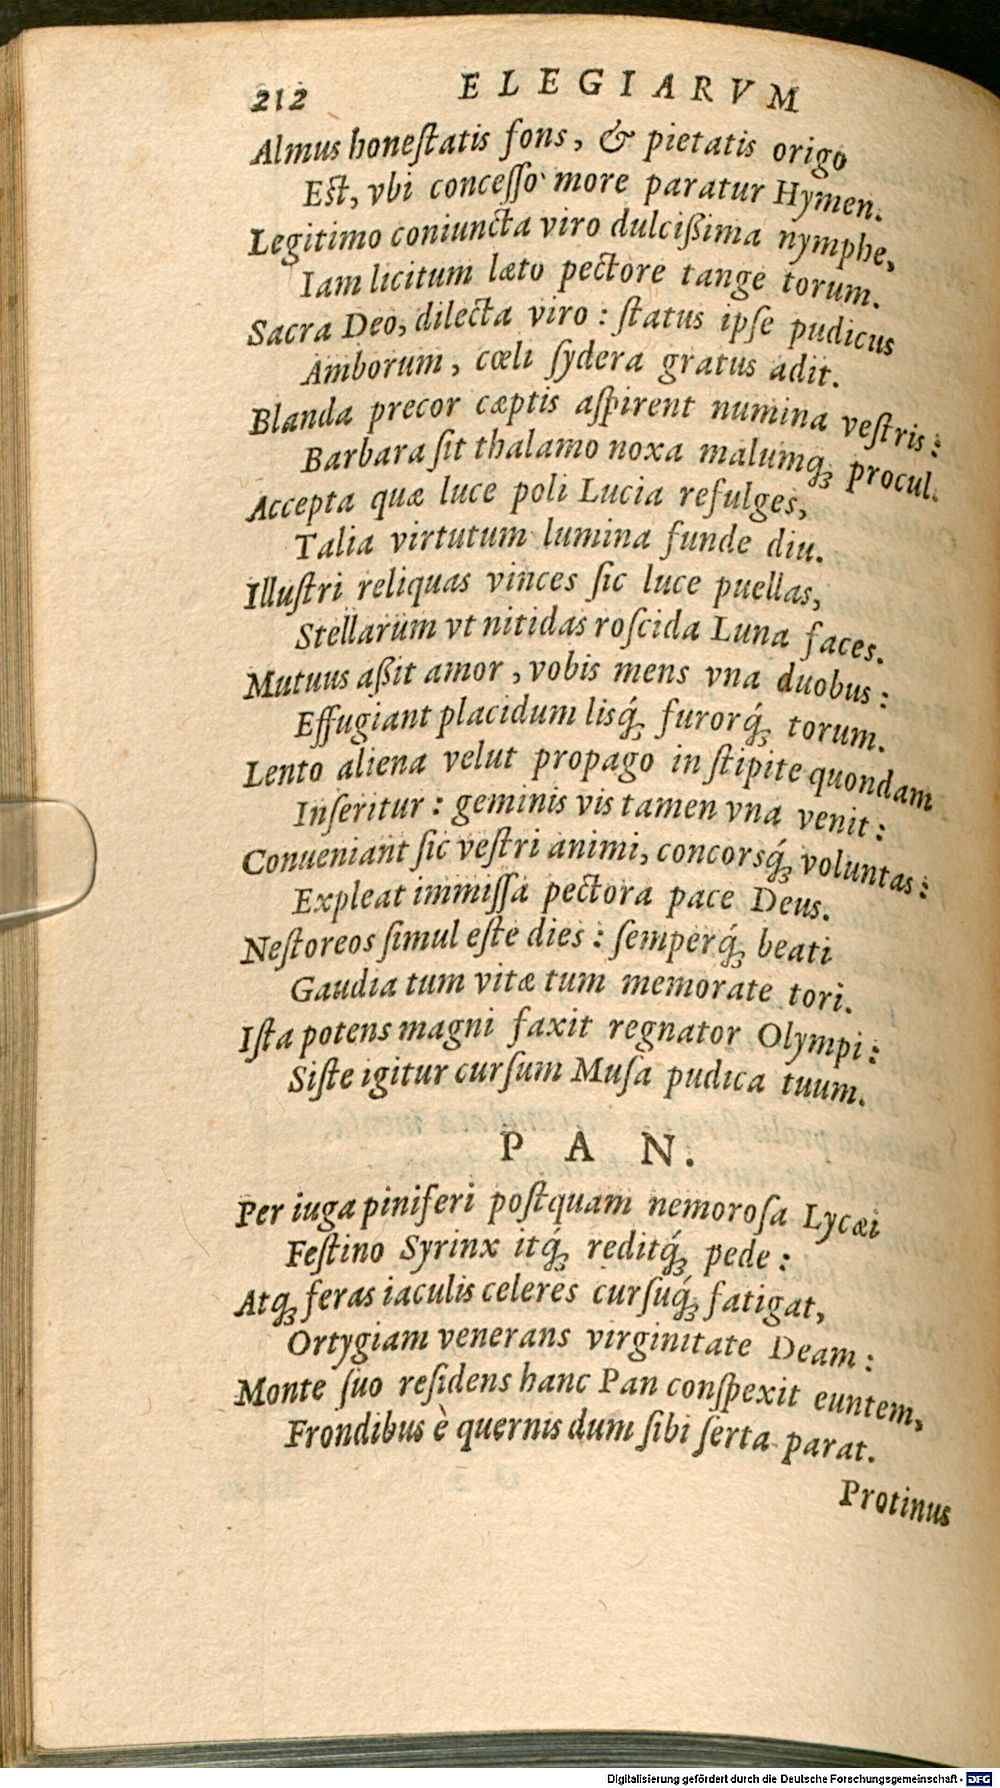 212 ELEGIARVM
Almus honeſtatis fons, & pietatis origo
Eſt, vbi conceſſo more paratur Hymen.
Legitimo coniuncta viro dulciſsima nymphe,
Iam licitum læto pectore tange torum.
Sacra Deo, dilecta viro: ſtatus ipſe pudicus
Amborum, cœli ſydera gratus adit.
Blanda precor cæptis aſpirent numina veſtris:
Barbara ſit thalamo noxa malumq; procul.
Accepta quæ luce poli Lucia refulges,
Talia virtutum lumina funde diu.
Illuſtri reliquas vinces ſic luce puellas,
Stellarum vt nitidas roſcida Luna faces.
Mutuus aßit amor, vobis mens vna duobus:
Effugiant placidum lisq́; furorq́; torum.
Lento aliena velut propago in ſtipite quondam
Inſeritur: geminis vis tamen vna venit:
Conueniant ſic veſtri animi, concorsq́; voluntas:
Expleat immiſſa pectora pace Deus.
Neſtoreos ſimul eſte dies: ſemperq́; beati
Gaudia tum vitæ tum memorate tori.
Iſta potens magni faxit regnator Olympi:
Siſte igitur curſum Muſa pudica tuum.
PAN.
Per iuga piniferi poſtquam nemoroſa Lycæi
Feſtino Syrinx itq́; reditq́; pede:
Atq; feras iaculis celeres curſuq́; fatigat,
Ortygiam venerans virginitate Deam:
Monte ſuo reſidens hanc Pan conſpexit euntem,
Frondibus è quernis dum ſibi ſerta parat.
Protinus
Digitalisierung gefördert durch die Deutsche Forschungsgemeinschaft - DFG